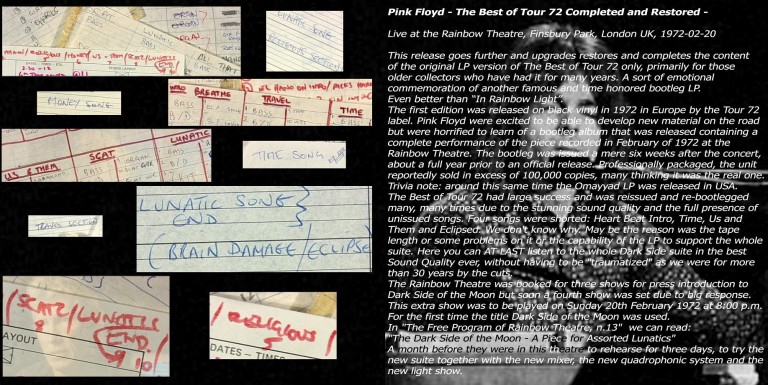 SCAT
LUNATIC
BASS
ORGAN
LUNATIC SONG
RELIGIOUS SECTION
MONEY SONG
BREATHE
TRAVEL
TIME
BASS
BASS
US & THEM
SCAT
LUNATIC
BASS
ORGAN
TIME SONG
TRAVEL SECTION
LUNATIC SONG
END
(BRAIN DAMAGE/ECLIPSE)
/SCAT/LUNATIC
8
END
9
10/
LAYOUT
/RELIGIOUS/
5
DATES - TIMES
Pink Floyd - The Best of Tour 72 Completed and Restored -
Live at the Rainbow Theatre, Finsbury Park, London UK, 1972-02-20
This release goes further and upgrades restores and completes the content
of the original LP version of The Best of Tour 72 only, primarily for those
older collectors who have had it for many years. A sort of emotional
commemoration of another famous and time honored bootleg LP.
Even better than "In Rainbow Light".
The first edition was released on black vinyl in 1972 in Europe by the Tour 72
label. Pink Floyd were excited to be able to develop new material on the road
but were horrified to learn of a bootleg album that was released containing a
complete performance of the piece recorded in February of 1972 at the
Rainbow Theatre. The bootleg was issued a mere six weeks after the concert,
about a full year prior to an official release. Professionally packaged, the unit
reportedly sold in excess of 100,000 copies, many thinking it was the real one.
Trivia note: around this same time the Omayyad LP was released in USA.
The Best of Tour 72 had large success and was reissued and re-bootlegged
many, many times due to the stunning sound quality and the full presence of
unissued songs. Four songs were shorted: Heart Beat Intro, Time, Us and
Them and Eclipsed. We don't know why. May be the reason was the tape
length or some problems on it or the capability of the LP to support the whole
suite. Here you can AT LAST listen to the whole Dark Side suite in the best
Sound Quality ever, without having to be "traumatized" as we were for more
than 30 years by the cuts.
The Rainbow Theatre was booked for three shows for press introduction to
Dark Side of the Moon but soon a fourth show was set due to big response.
This extra show was to be played on Sunday 20th February 1972 at 8:00 p.m.
For the first time the title Dark Side of the Moon was used.
In "The Free Program of Rainbow Theatre, n.13" we can read:
"The Dark Side of the Moon - A Piece for Assorted Lunatics"
A month before they were in this theatre to rehearse for three days, to try the
new suite together with the new mixer, the new quadrophonic system and the
new light show.